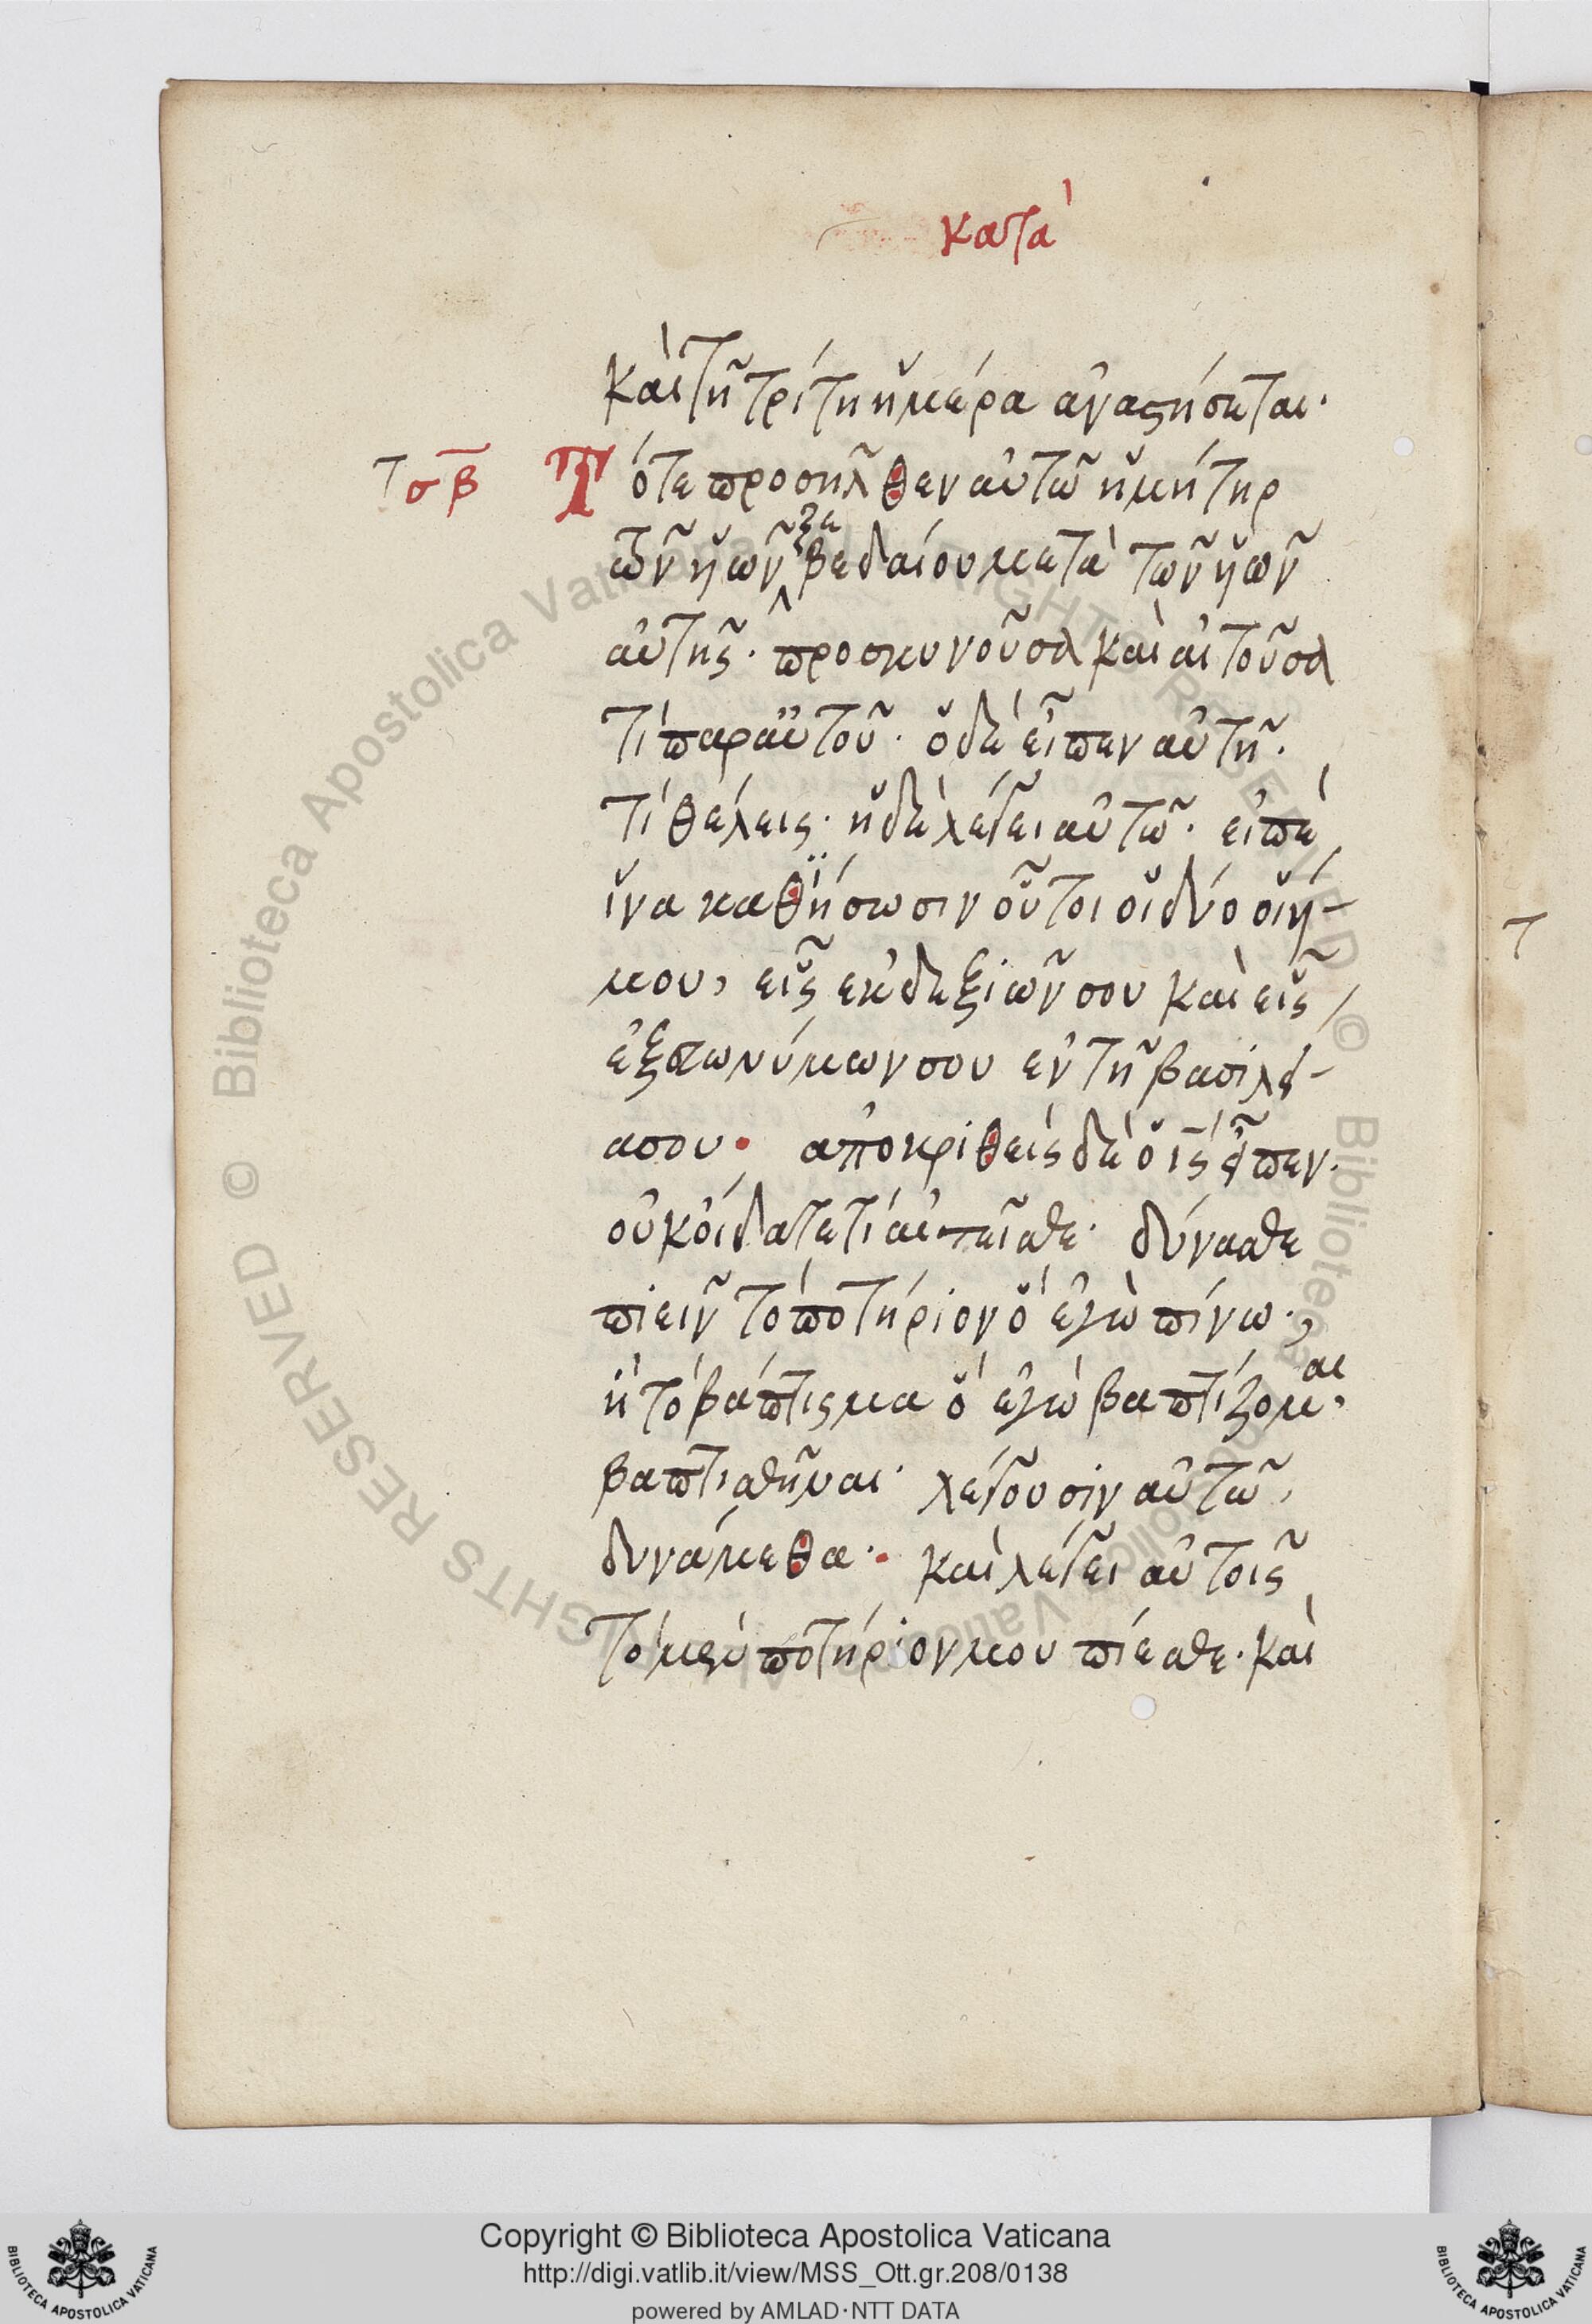 κατὰ
καὶ τῆ τρίτη ἡμέρα ἀναστήσεται·
σβ Τότε προσῆλθεν αὐτῶ ἡ μήτηρ
τῶν ὑῶν ζεβεδαίου μετὰ τῶν ὑῶν
αὐτῆς· προσκυνοῦσα καὶ αἰτοῦσα
τί παρ' αὐτοῦ· ὁ δὲ εἶπεν αὐτῆ·
τί θέλεις· ἡ δὲ λέγει αὐτῶ· εἰπὲ
ἵνα καθϊήσωσιν οὗτοι οἱ δύο οἱ ὑ-
μου, εἷς ἐκ δεξιῶν σου καὶ εἷς
ἐξ εὐωνύμων σου ἐν τῆ βασιλεί-
α σου· ἀποκριθεὶς δὲ ὁ ις εἶπεν·
οὐκ οἴδατε τί αἰτεῖσθε· δύνασθε
πιεῖν τὸ ποτήριον ὃ ἐγὼ πίνω·,
ἢ τὸ βάπτισμα ὃ ἐγὼ βαπτίζομαι·
βαπτισθῆναι· λέγουσιν αὐτῶ,
δυνάμεθα· καὶ λέγει αὐτοῖς
τὸ μὲν ποτήριον μου πίεσθε· καὶ
Copyright © Biblioteca Apostolica Vaticana
http://digi.vatlib.it/view/MSS_Ott.gr.208/0138
powered by AMLAD·NTT DATA